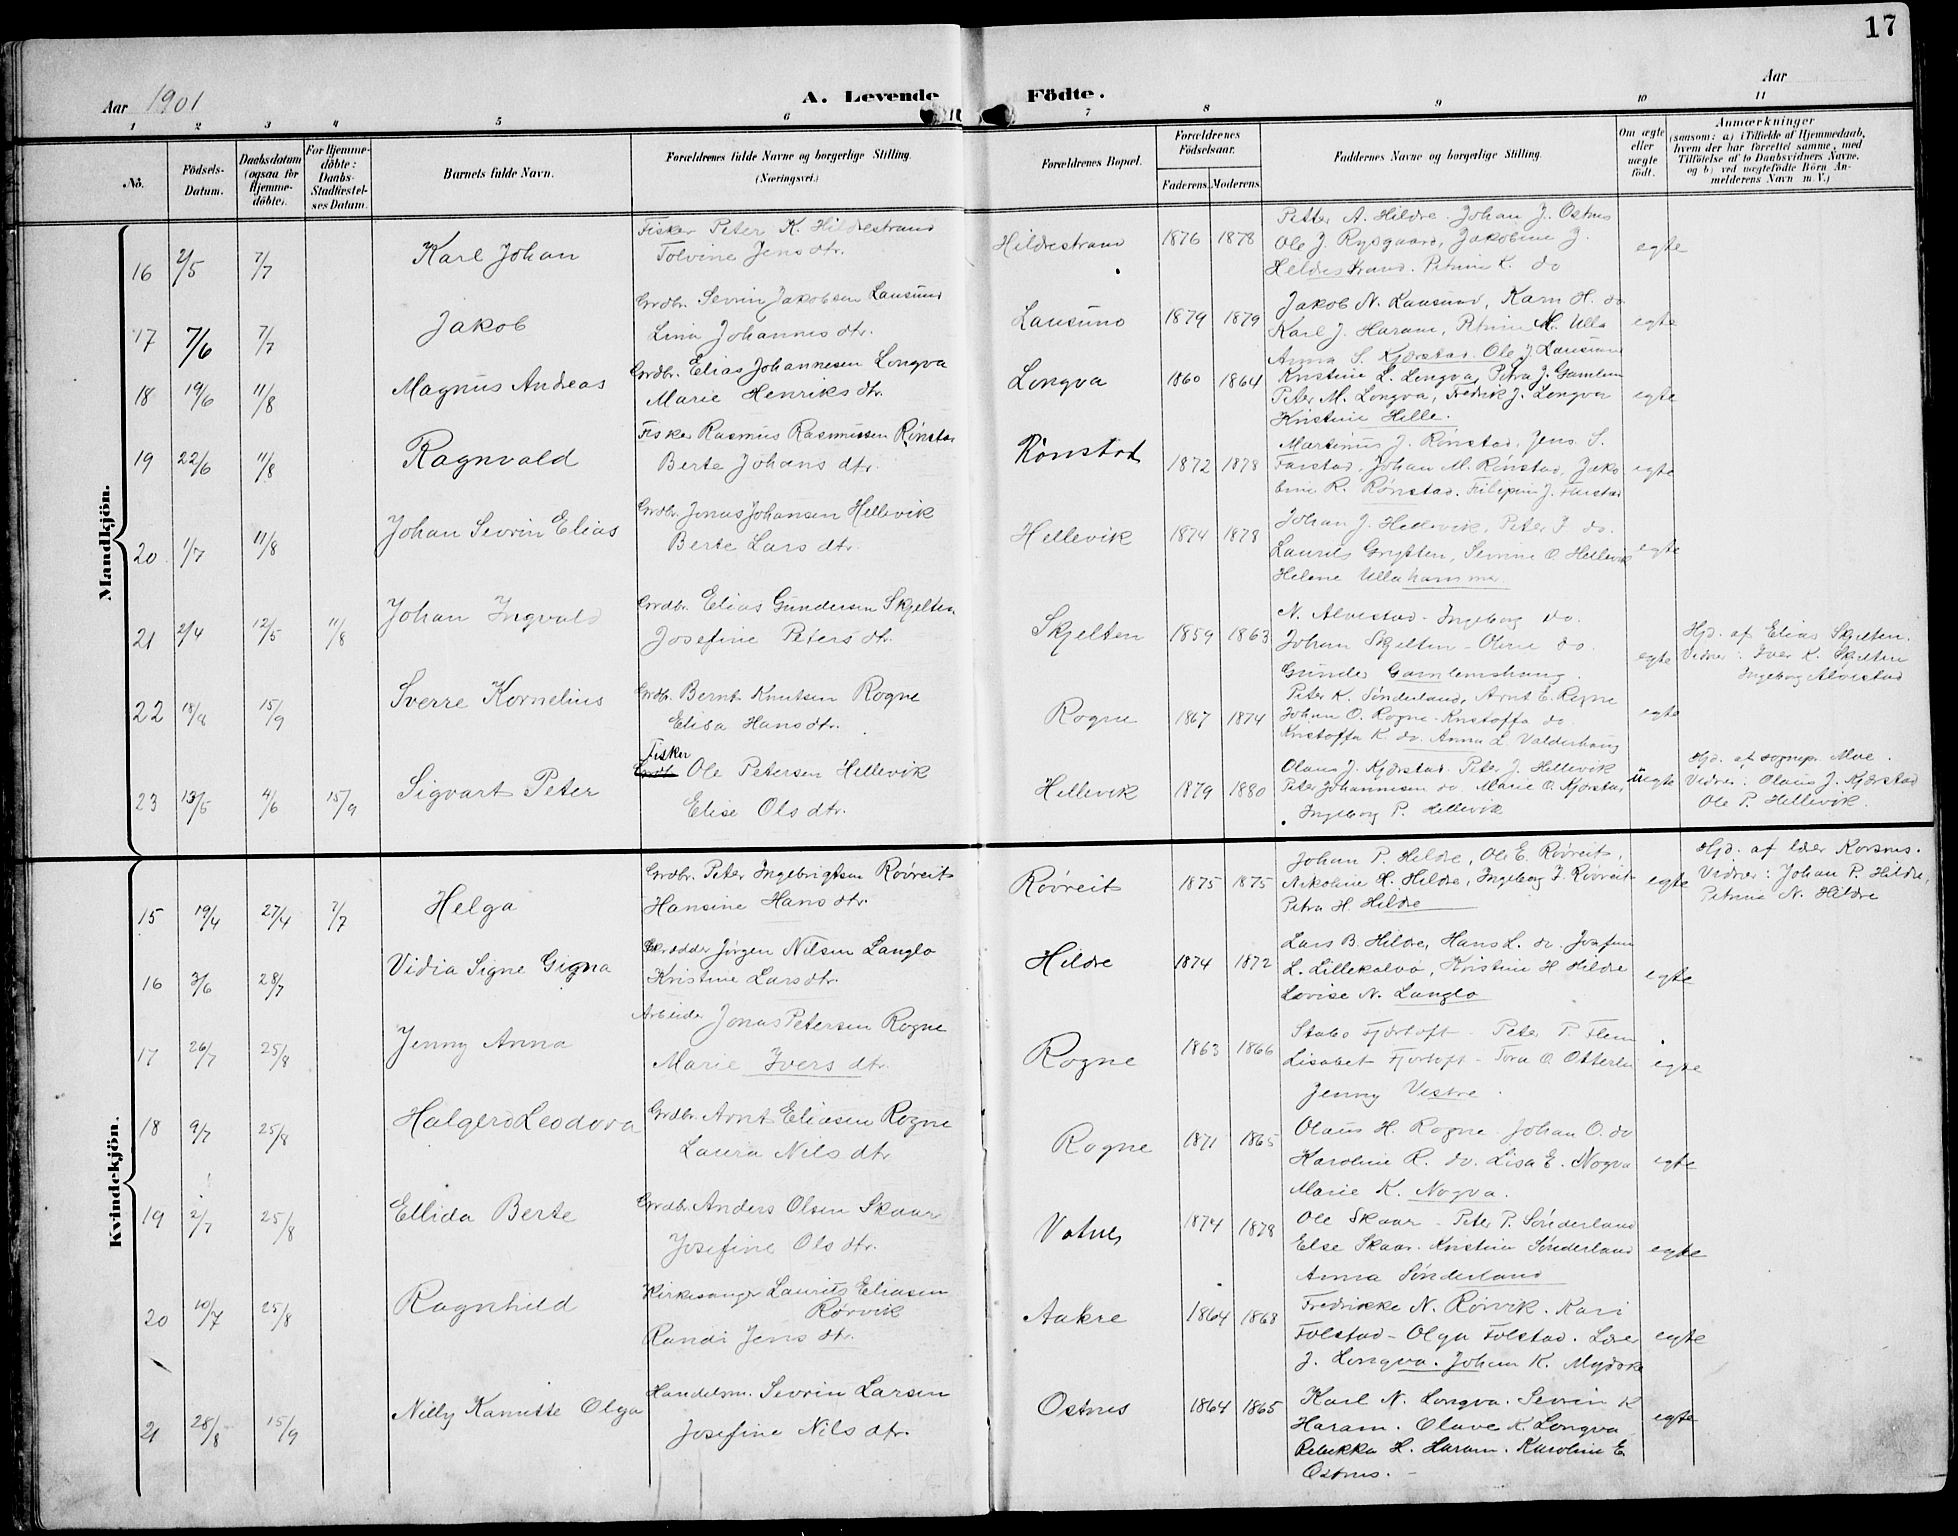 17
Aar 1901
A. Levende Födte.
Aar
1 2 3 4 5 6 7 8 9 10 11
No.
Födsels-Datum.
Daabsdatum (ogsaa for Hjemmedöbte).
For Hjemmedöbte: Daabs-Stadfæstelses Datum.
Barnets fulde Navn.
Forældrenes fulde Navne og borgerlige Stilling. (Næringsvei.)
Forældrenes Bopæl.
Forældrenes Födselsaar.
Faderens. Moderens.
Faddernes Navne og borgerlige Stilling.
Om ægte eller uægte födt.
Anmærkninger
(saasom: a) i Tilfælde af Hjemmedaab, hvem der har forrettet samme, med Tilföielse af to Daabsvidners Navne, og b) ved uægtefödte Börn Anmelderens Navn m. V.)
Mandkjön.
16 2/5 7/7 Karl Johan
Fisker Peter K. Hildrestrand
Tolvine Jensdtr.
Hildrestrand 1876 1878
Petter A. Hildre. Johan J. Ostnes
Ole J. Rypgaard, Jakobine J.
Hildestrand. Petrine K. do
egte
17 7/6 7/7 Jakob
Grdbr. Sevrin Jakobsen Lausund
Lina Johannesdtr.
Lausund 1879 1879
Jakob N. Lausund, Karn H. do.
Karl J. Haram, Petrine M. Ulla
Anna S. Kjærstad. Ole J. Lausund
egte
18 19/6 11/8 Magnus Andreas
Grdbr. Elias Johannesen Longva
Marie Henriksdtr.
Longva 1860 1864
Kristine L. Longva, Petra J. Gamlem
Peter M. Longva, Fredrik J. Longva
Kristine Hille.
egte
19 22/6 11/8 Ragnvald
Fisker Rasmus Rasmussen Rønstad
Berte Johansdtr.
Rønstad 1872 1878
Martinus J. Rønstad, Jens S.
Farstad, Johan M. Rønstad, Jako
bine R. Rønstad. Filipine J. Farstad
egte
20 1/7 11/8 Johan Sevrin Elias
Grdbr. Jonas Johansen Hellevik
Berte Larsdtr.
Hellevik 1874 1878
Johan J. Hellevik, Peter J. do.
Laurits Grytten, Sevrine O. Hellevik
Helene Ullahammer
egte
21 2/4 12/5 11/8 Johan Ingvald
Grdbr. Elias Gundersen Skjelten
Josefine Petersdtr.
Skjelten 1859 1863
N. Alvestad. Ingeborg do.
Johan Skjelten - Oline do.
Gunde Gamlemshaug.
egte
Hjd. af Elias Skjelten.
Vidner: Iver K. Skjelten
Ingeborg Alvestad
22 18/8 15/9 Sverre Kornelius
Grdbr. Bernt Knutsen Rogne
Elisa Hansdtr.
Rogne 1867 1874
Peter K. Sønderland, Arnt E. Rogne
Johan O. Rogne. Kristoffa do.
Kristoffa K. do. Anna L. Valderhaug
egte
23 13/5 4/6 15/9 Sigvart Peter
Fisker
Grdbr. Ole Petersen Hellevik
Elise Olsdtr.
Hellevik 1879 1880
Olaus J. Kjærstad. Peter J. Hellevik
Peter Johannesen do. Marie O. Kjærstad,
Ingeborg P. Hellevik
uegte
Hjd. af sognepr. Moe.
Vidner: Olaus J. Kjærstad
Ole P. Hellevik.
Kvindekjön.
15 19/4 27/4 7/7 Helga
Grdbr. Peter Ingebrigtsen Røvreit
Hansine Hansdtr.
Røvreit 1875 1875
Johan P. Hildre, Ole E. Røvreit,
Nikoline H. Hildre, Ingeborg J. Røvreit
Petra H. Hildre
egte
Hjd. af lær Korsnes.
Vidner: Johan P. Hildre,
Petrine N. Hildre
16 3/6 28/7 Vidia Signe Gigna
Skrædder Jørgen Nilsen Langlo
Kristine Larsdtr.
Hildre 1874 1872
Lars B. Hildre, Hans L. do. Josefine
L. Lillekalvø, Kristine H Hildre
Lovise N. Langlo
egte
17 26/7 25/8 Jenny Anna
Arbeider Jonas Petersen Rogne
Marie Iversdtr.
Rogne 1863 1866
Stabo Fjørtoft - Peter P. Flem
Lisabet Fjørtoft - Tora O. Otterlei
Jenny Vestre.
egte
18 9/7 25/8 Halgerd Leodova
Grdbr. Arnt Eliasen Rogne
Laura Nilsdtr
Rogne 1871 1865
Olaus H. Rogne. Johan O. do
Karoline R. do. Lisa E. Nogva
Marie K. Nogva.
egte
19 2/7 25/8 Ellida Berte
Grdbr. Anders Olsen Skaar
Josefine Olsdtr.
Vatnes 1874 1878
Ole Skaar - Peter P. Sønderland
Else Skaar. Kristine Sønderland
Anna Sønderland
egte
20 10/7 25/8 Ragnhild
Kirkesanger Laurits Eliasen
Rørvik
Randi Jensdtr.
Aakre 1864 1868
Fredrikke N. Rørvik. Kari
Tolstad - Olga Tolstad. Lærer
J. Longva. Johan K. Myrvke
egte
21 28/8 15/9 Nilly Kanutte Olga
Handelsm. Sevrin Larsen
Josefine Nilsdtr.
Ostnes 1864 1865
Karl N. Longva. Sevrin K
Haram. Olave K. Longva
Rebekka H. Haram. Karoline E.
Ostnes.
egte